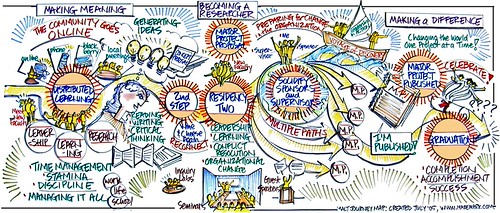 MAKING MEANING
THE COMMUNITY GOES
ONLINE
online
phone
black
berry
local
meetings
GENERATING
IDEAS
BECOMING A
RESEARCHER
MAJOR
PROJECT
PROPOSAL
PREPARING for CHANGE
in the ORGANIZATION
Super-
visor
Sponsor
MAKING a DIFFERENCE
Changing the World
One Project at a Time!
MAJOR
PROJECT
PUBLISHED
CELEBRATE!
DISTRIBUTED
LEARNING
LEADER
SHIP
LEARN-
ING
RESEARCH
READING
WRITING
CRITICAL
THINKING
2nd
STEP
RESIDENCY
TWO
RECONNECT
LEADERSHIP
LEARNING
CONFLICT
RESOLUTION
ORGANIZATIONAL
CHANGE
SOLIDIFY
SPONSOR
and
SUPERVISOR
MULTIPLE PATHS
M.P.
M.P.
M.P.
M.P.
I'M
PUBLISHED!
???
GRADUATION
• COMPLETION
• ACCOMPLISHMENT
• SUCCESS
• TIME MANAGEMENT
• STAMINA
• DISCIPLINE
• MANAGING IT ALL
work
life
Inquiry
Labs
Seminars
Guest
Speakers
MALT JOURNEY MAP: CREATED JULY '07,